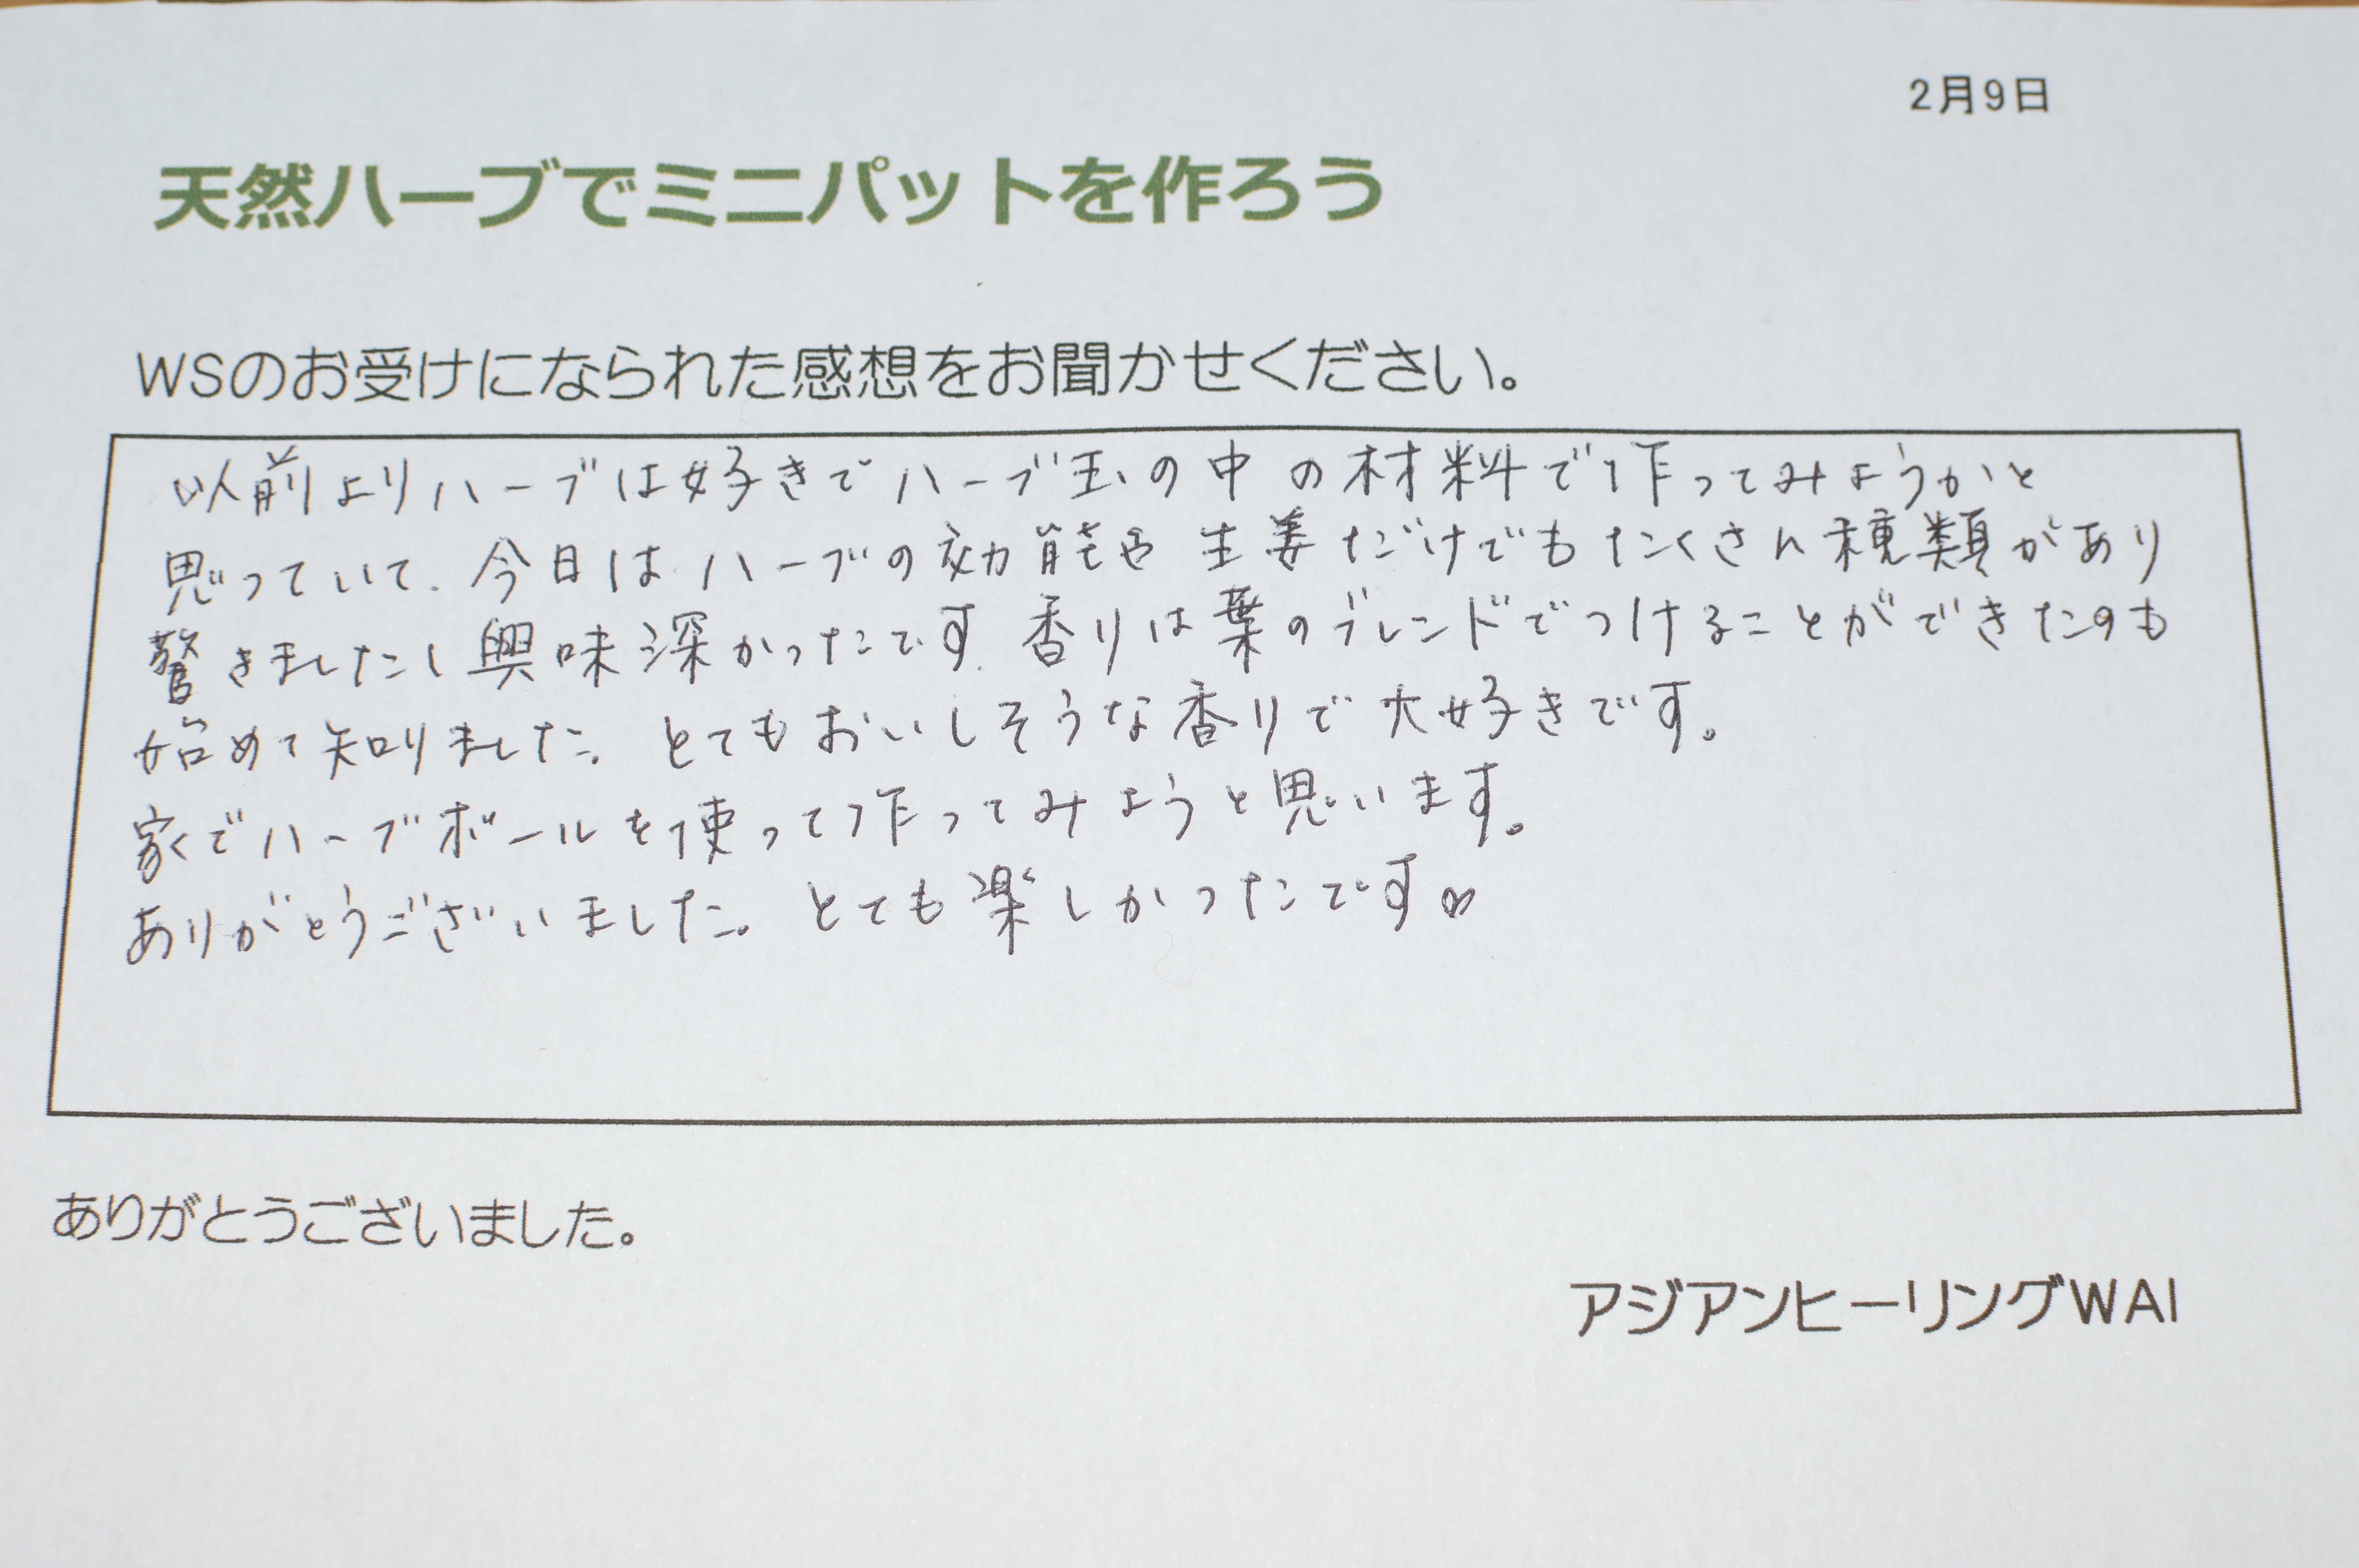 2月9日
天然ハーブでミニパットを作ろう
WSのお受けになられた感想をお聞かせください。
以前よりハーブは好きでハーブ玉の中の材料で作ってみようかと
思っていて、今日はハーブの効能や生姜だけでもたくさん種類があり
驚きましたし興味深かったです。香りは葉のブレンドでつけることができたのも
始めて知りました。とてもおいしそうな香りで大好きです。
家でハーブボールを使って作ってみようと思います。
ありがとうございました。とても楽しかったです♡
ありがとうございました。
アジアンヒーリングWAI